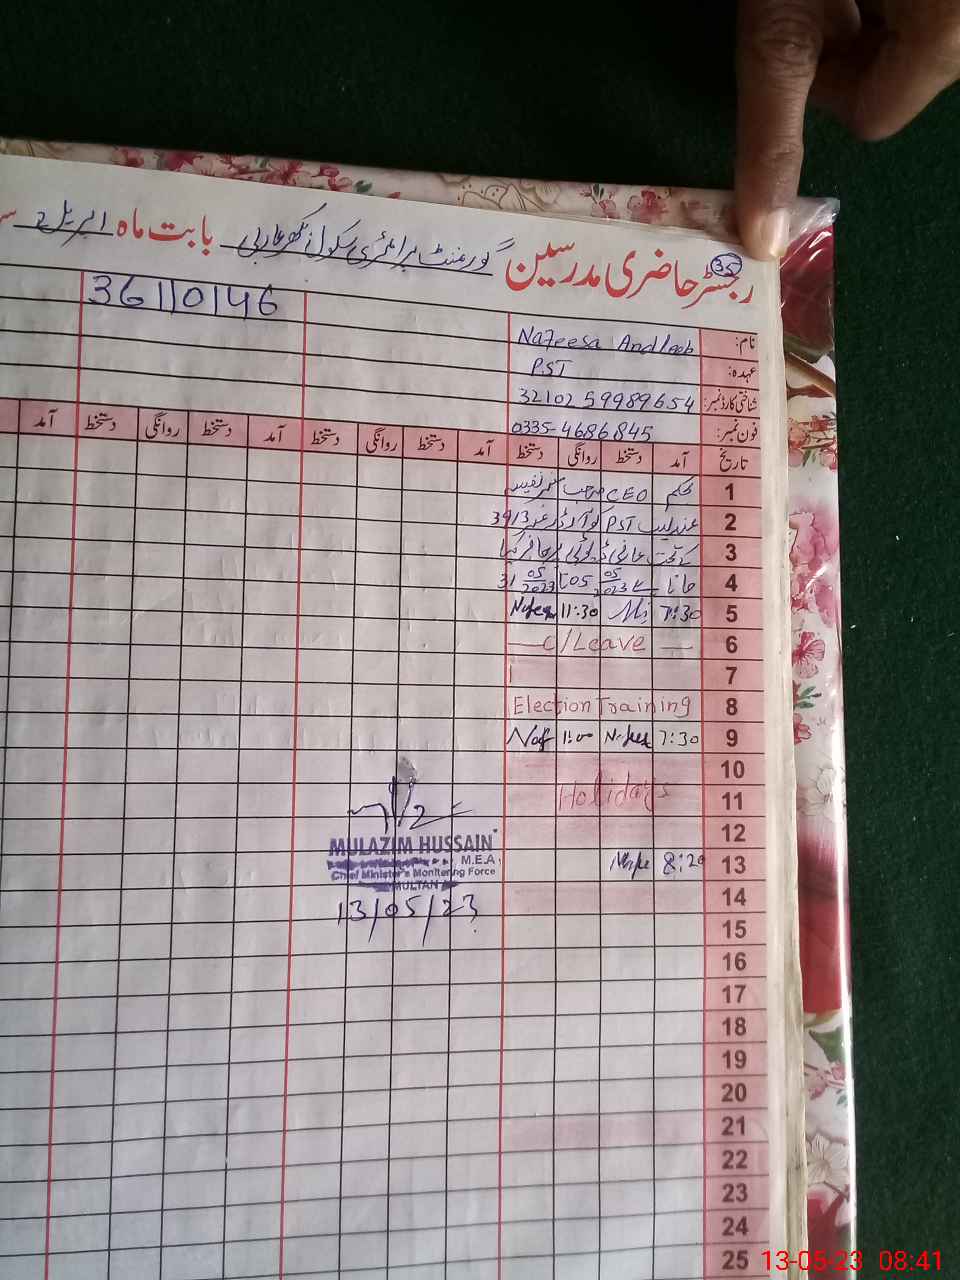 رجسٹر حاضری مدرسین گورنمنٹ پرائمری سکول بابت ماہ اپریل
35
36110146
نام: Nafeesa Andleeb
عہدہ: PST
شناختی کارڈ نمبر: 32102 59989654
فون نمبر: 0335-4686845
تاریخ آمد دستخط روانگی دستخط آمد دستخط روانگی دستخط آمد دستخط روانگی دستخط آمد
1 بحکم CEO صاحب
2 عندلیب PST کو آرڈر نمبر 3913
3 کے تحت عارضی ڈیوٹی پر حاضر کیا
4 جاتا ہے 05/05/2023 تا 31/05/2023
5 7:30 11:30
6 — C/Leave —
7
8 Election Training
9 7:30 1:00
10
11 Holidays
12
13 8:20
14
15
16
17
18
19
20
21
22
23
24
25
MULAZIM HUSSAIN
M.E.A
Chief Minister's Monitoring Force
MULTAN
13/05/23
13-05-23 08:41